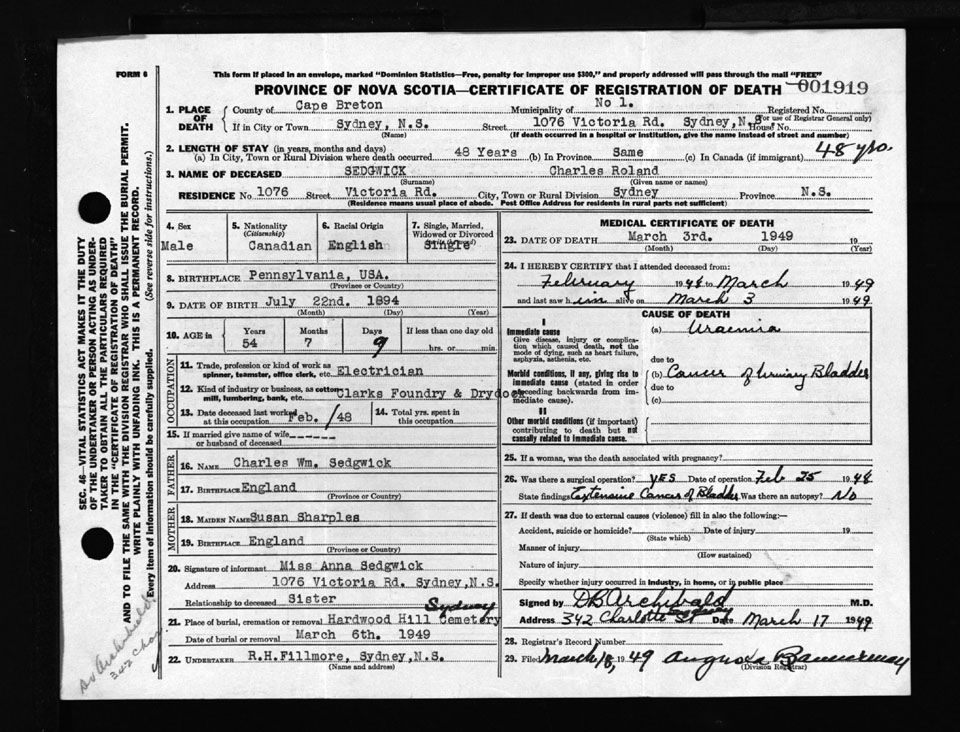 FORM 6
This form if placed in an envelope, marked "Dominion Statistics—Free, penalty for improper use $300," and properly addressed will pass through the mail "FREE"
PROVINCE OF NOVA SCOTIA—CERTIFICATE OF REGISTRATION OF DEATH 001919
1. PLACE OF DEATH County of Cape Breton Municipality of No 1. Registered No.
(For use of Registrar General only)
If in City or Town Sydney, N.S. Street 1076 Victoria Rd. Sydney,N.S House No.
(Name) (If death occurred in a hospital or institution, give the name instead of street and number)
2. LENGTH OF STAY (in years, months and days)
(a) In City, Town or Rural Division where death occurred 48 Years (b) In Province Same (c) In Canada (if immigrant) 48 yrs.
3. NAME OF DECEASED SEDGWICK Charles Roland
(Surname) (Given name or names)
RESIDENCE No 1076 Street Victoria Rd. City, Town or Rural Division Sydney Province N.S.
(Residence means usual place of abode. Post Office Address for residents in rural parts not sufficient)
4. Sex Male
5. Nationality (Citizenship) Canadian
6. Racial Origin English
7. Single, Married, Widowed or Divorced Single
8. BIRTHPLACE Pennsylvania, USA.
(Province or Country)
9. DATE OF BIRTH July 22nd. 1894
(Month) (Day) (Year)
10. AGE in Years Months Days If less than one day old
54 7 9 hrs. or min.
OCCUPATION
11. Trade, profession or kind of work as spinner, teamster, office clerk, etc. Electrician
12. Kind of industry or business, as cotton mill, lumbering, bank, etc. Clarks Foundry & Drydock
13. Date deceased last worked at this occupation Feb. /48
14. Total yrs. spent in this occupation
15. If married give name of wife or husband of deceased -------
FATHER
16. NAME Charles Wm. Sedgwick
17. BIRTHPLACE England
(Province or Country)
MOTHER
18. MAIDEN NAME Susan Sharples
19. BIRTHPLACE England
(Province or Country)
20. Signature of informant Miss Anna Sedgwick
Address 1076 Victoria Rd. Sydney,N.S.
Relationship to deceased Sister
Sydney
21. Place of burial, cremation or removal Hardwood Hill Cemetery
Date of burial or removal March 6th. 1949
22. UNDERTAKER R.H.Fillmore, Sydney,N.S.
(Name and address)
MEDICAL CERTIFICATE OF DEATH
23. DATE OF DEATH March 3rd. 1949 19
(Month) (Day) (Year)
24. I HEREBY CERTIFY that I attended deceased from:
February 1948 to March 1949
and last saw him alive on March 3 1949
CAUSE OF DEATH
I
Immediate cause
Give disease, injury or complication which caused death, not the mode of dying, such as heart failure, asphyxia, asthenia, etc.
(a) Uraemia
due to
Morbid conditions, if any, giving rise to immediate cause (stated in order proceeding backwards from immediate cause).
(b) Cancer of Urinary Bladder
due to
(c)
II
Other morbid conditions (if important) contributing to death but not causally related to immediate cause.
25. If a woman, was the death associated with pregnancy?
26. Was there a surgical operation? YES Date of operation Feb 25 1948
State findings Extensive Cancer of Bladder Was there an autopsy? No
27. If death was due to external causes (violence) fill in also the following:—
Accident, suicide or homicide? Date of injury 19
(State which)
Manner of injury
(How sustained)
Nature of injury
Specify whether injury occurred in industry, in home, or in public place
Signed by DB Archibald M.D.
Address 342 Charlotte St Sydney Date March 17 1949
28. Registrar's Record Number
29. Filed March 18, 1949 Augusta Bannerman
(Division Registrar)
SEC. 46—VITAL STATISTICS ACT MAKES IT THE DUTY
OF THE UNDERTAKER OR PERSON ACTING AS UNDERTAKER
TO OBTAIN ALL THE PARTICULARS REQUIRED
IN THE "CERTIFICATE OF REGISTRATION OF DEATH"
AND TO FILE THE SAME WITH THE DIVISION REGISTRAR WHO SHALL ISSUE THE BURIAL PERMIT.
WRITE PLAINLY WITH UNFADING INK. THIS IS A PERMANENT RECORD.
Every item of information should be carefully supplied. (See reverse side for instructions.)
Dr Archibald
342 Char